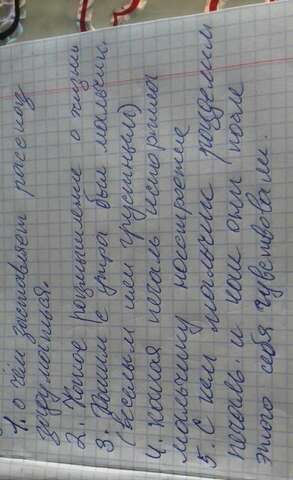 1. О чём заставляет рассказ
задуматься.
2. Ночное размышление о жизни
3. Каким с утра был мальчик.
(весёлым или грустным)
4. какая печаль испортила
мальчику настроение
5 С кем мальчик разделил
печаль и как они после
этого себя чувствовали.